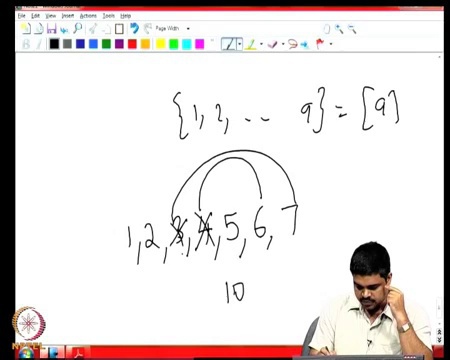 File Edit View Insert Actions Tools Help
Page Width
{1, 2, .. 9} = [9]
1, 2, 3, 4, 5, 6, 7
10
NPTEL